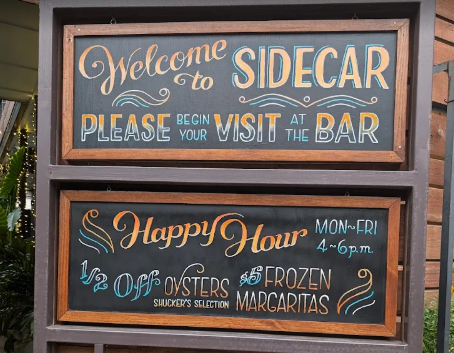 Welcome to SIDECAR
PLEASE BEGIN YOUR VISIT AT THE BAR
Happy Hour MON~FRI 4~6pm
1/2 Off OYSTERS SHUCKER'S SELECTION
$5 FROZEN MARGARITAS